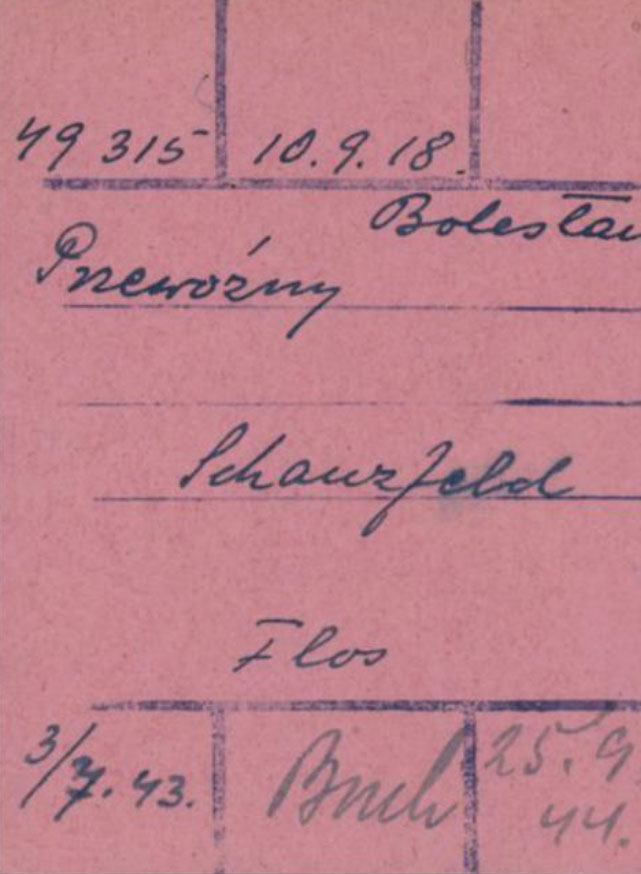 49 315 10.9.18.
Bolesław
Pnewoźny
Schanzfeld
Flos
3/7.43. Buch 25.9
44.